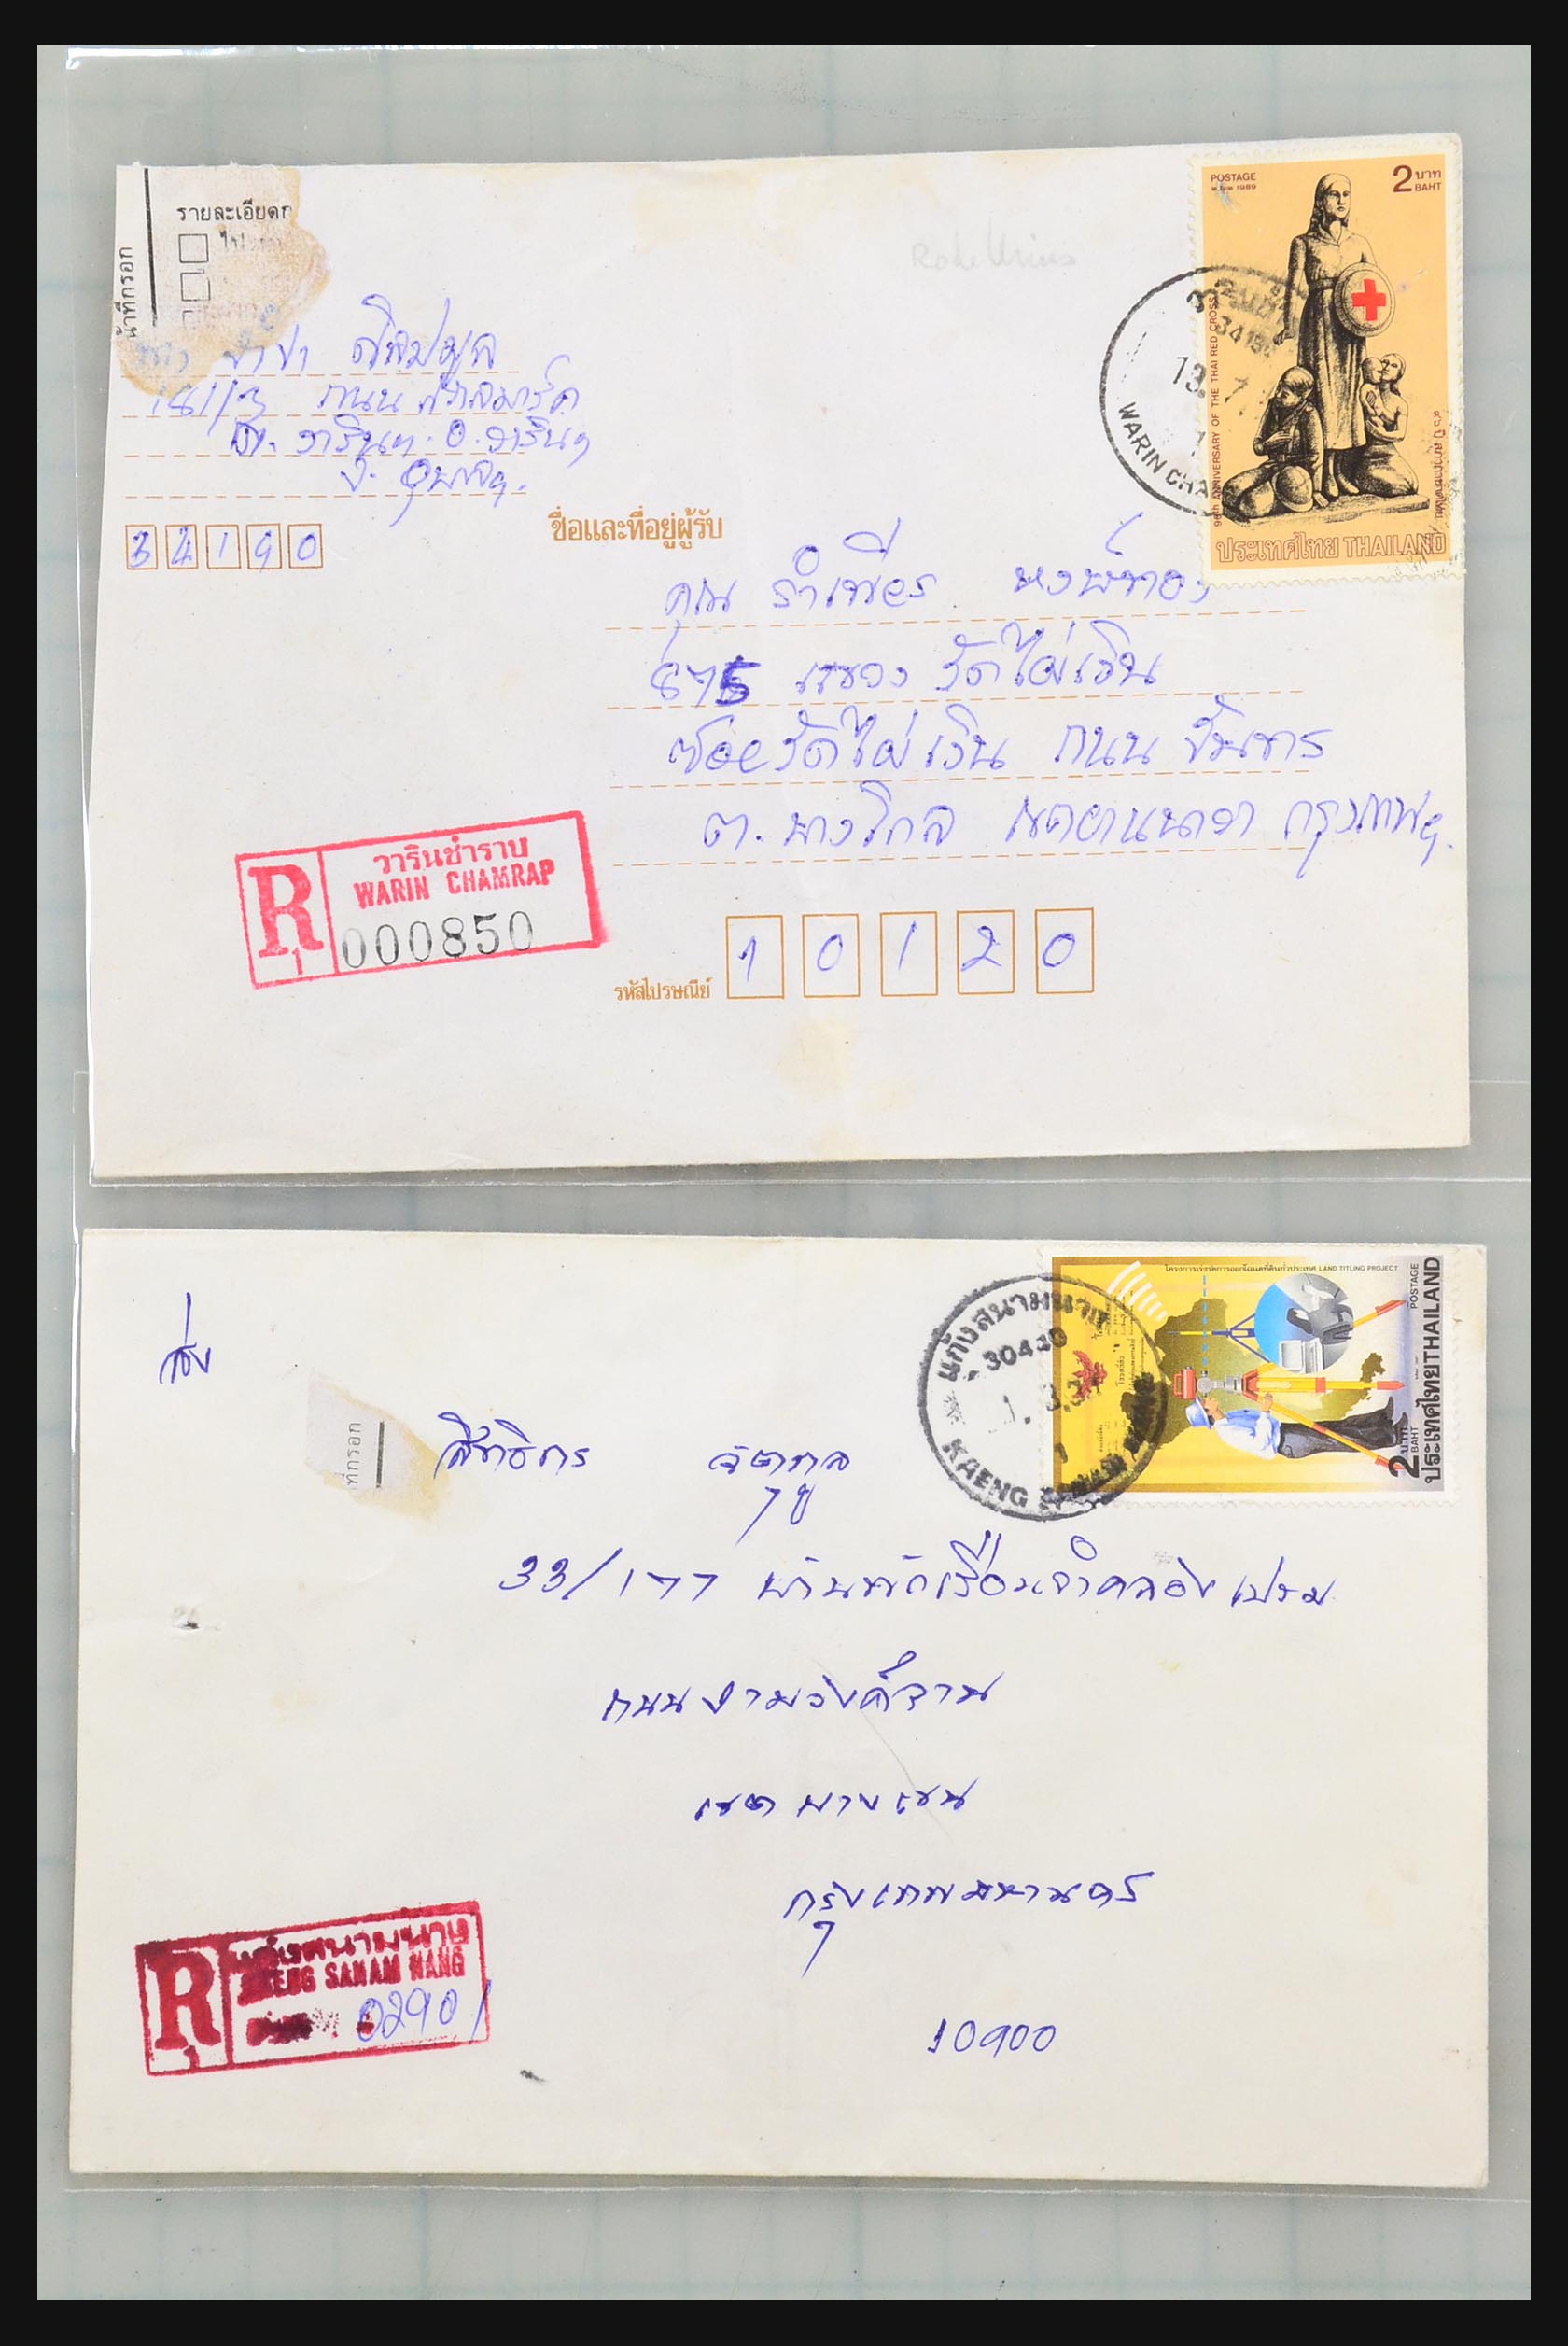 รายละเอียด
น้าที่กรอก
181/3 ถนน
ต. วารินฯ. อ. วารินฯ
จ. อุบลฯ.
34190
ชื่อและที่อยู่ผู้รับ
คุณ รำเพียร หงษ์ทอง
875 แขวง วัดไผ่เงิน
ซอยวัดไผ่เงิน ถนน จันทร์
ต. บางโคล่ เขตยานนาวา กรุงเทพฯ.
รหัสไปรษณีย์ 10120
R
1
วารินชำราบ
WARIN CHAMRAP
000850
POSTAGE
1989
2 บาท
BAHT
96th ANNIVERSARY OF THE THAI RED CROSS
๙๖ ปี สภากาชาดไทย
ประเทศไทย THAILAND
WARIN CHA
ส่ง
ที่กรอก
สิทธิกร จิตุกูล
33/177 บ้านพักเรือนจำคลองเปรม
ถนน งามวงศ์วาน
เขต บางเขน
กรุงเทพมหานคร
10900
R
1
แก้งสนามนาง
KAENG SANAM NANG
02901
แก้งสนามนาง
30440
KAENG SANAM NANG
โครงการเร่งรัดการออกโฉนดที่ดินทั่วประเทศ LAND TITLING PROJECT
2 บาท
BAHT
POSTAGE
ประเทศไทย THAILAND